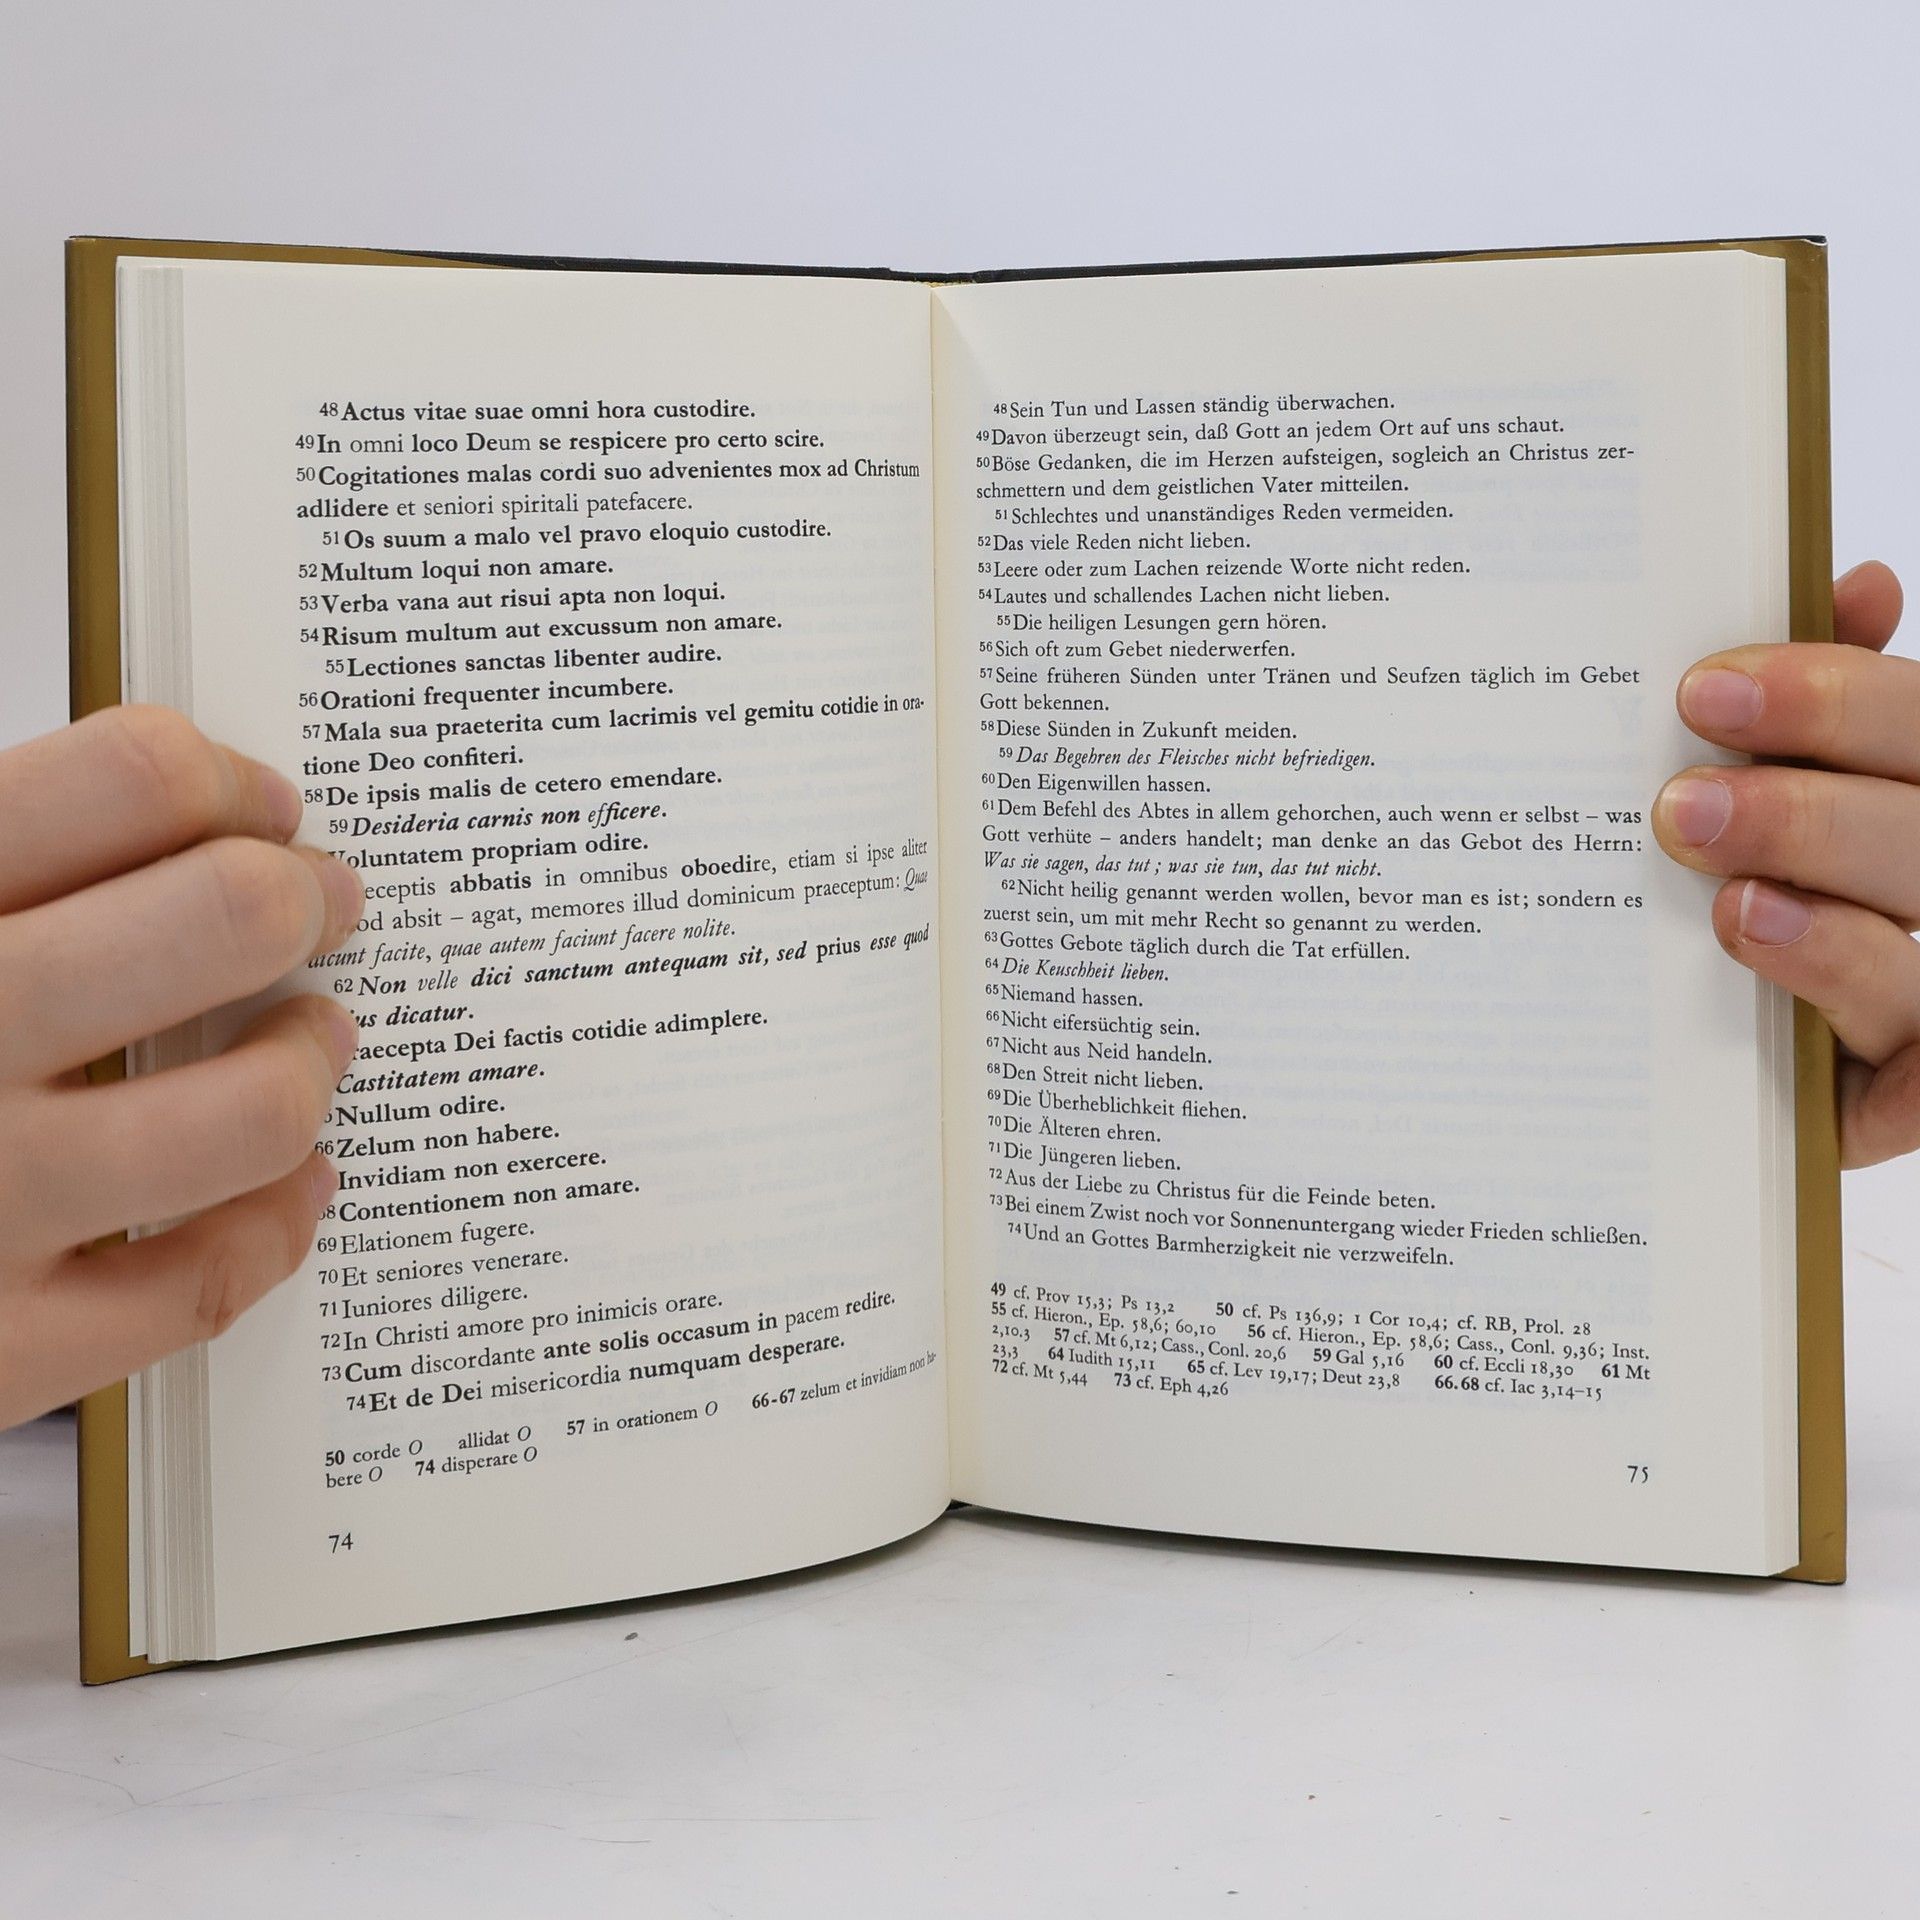 48 Actus vitae suae omni hora custodire.
49 In omni loco Deum se respicere pro certo scire.
50 Cogitationes malas cordi suo advenientes mox ad Christum
adlidere et seniori spiritali patefacere.
51 Os suum a malo vel pravo eloquio custodire.
52 Multum loqui non amare.
53 Verba vana aut risui apta non loqui.
54 Risum multum aut excussum non amare.
55 Lectiones sanctas libenter audire.
56 Orationi frequenter incumbere.
57 Mala sua praeterita cum lacrimis vel gemitu cotidie in ora-
tione Deo confiteri.
58 De ipsis malis de cetero emendare.
59 Desideria carnis non efficere.
Voluntatem propriam odire.
abbatis in omnibus oboedire, etiam si ipse aliter
absit – agat, memores illud dominicum praeceptum: Quae
dicunt facite, quae autem faciunt facere nolite.
62 Non velle dici sanctum antequam sit, sed prius esse quod
dicatur.
Praecepta Dei factis cotidie adimplere.
Castitatem amare.
Nullum odire.
66 Zelum non habere.
Invidiam non exercere.
68 Contentionem non amare.
69 Elationem fugere.
70 Et seniores venerare.
71 Iuniores diligere.
72 In Christi amore pro inimicis orare.
73 Cum discordante ante solis occasum in pacem redire.
74 Et de Dei misericordia numquam desperare.
50 corde O allidat O 57 in orationem O 66-67 zelum et invidiam non ha-
bere O 74 disperare O
74
48 Sein Tun und Lassen ständig überwachen.
49 Davon überzeugt sein, daß Gott an jedem Ort auf uns schaut.
50 Böse Gedanken, die im Herzen aufsteigen, sogleich an Christus zer-
schmettern und dem geistlichen Vater mitteilen.
51 Schlechtes und unanständiges Reden vermeiden.
52 Das viele Reden nicht lieben.
53 Leere oder zum Lachen reizende Worte nicht reden.
54 Lautes und schallendes Lachen nicht lieben.
55 Die heiligen Lesungen gern hören.
56 Sich oft zum Gebet niederwerfen.
57 Seine früheren Sünden unter Tränen und Seufzen täglich im Gebet
Gott bekennen.
58 Diese Sünden in Zukunft meiden.
59 Das Begehren des Fleisches nicht befriedigen.
60 Den Eigenwillen hassen.
61 Dem Befehl des Abtes in allem gehorchen, auch wenn er selbst – was
Gott verhüte – anders handelt; man denke an das Gebot des Herrn:
Was sie sagen, das tut; was sie tun, das tut nicht.
62 Nicht heilig genannt werden wollen, bevor man es ist; sondern es
zuerst sein, um mit mehr Recht so genannt zu werden.
63 Gottes Gebote täglich durch die Tat erfüllen.
64 Die Keuschheit lieben.
65 Niemand hassen.
66 Nicht eifersüchtig sein.
67 Nicht aus Neid handeln.
68 Den Streit nicht lieben.
69 Die Überheblichkeit fliehen.
70 Die Älteren ehren.
71 Die Jüngeren lieben.
72 Aus der Liebe zu Christus für die Feinde beten.
73 Bei einem Zwist noch vor Sonnenuntergang wieder Frieden schließen.
74 Und an Gottes Barmherzigkeit nie verzweifeln.
49 cf. Prov 15,3; Ps 13,2 50 cf. Ps 136,9; 1 Cor 10,4; cf. RB, Prol. 28
55 cf. Hieron., Ep. 58,6; 60,10 56 cf. Hieron., Ep. 58,6; Cass., Conl. 9,36; Inst.
2,10.3 57 cf. Mt 6,12; Cass., Conl. 20,6 59 Gal 5,16 60 cf. Eccli 18,30 61 Mt
23,3 64 Iudith 15,11 65 cf. Lev 19,17; Deut 23,8 66.68 cf. Iac 3,14–15
72 cf. Mt 5,44 73 cf. Eph 4,26
75